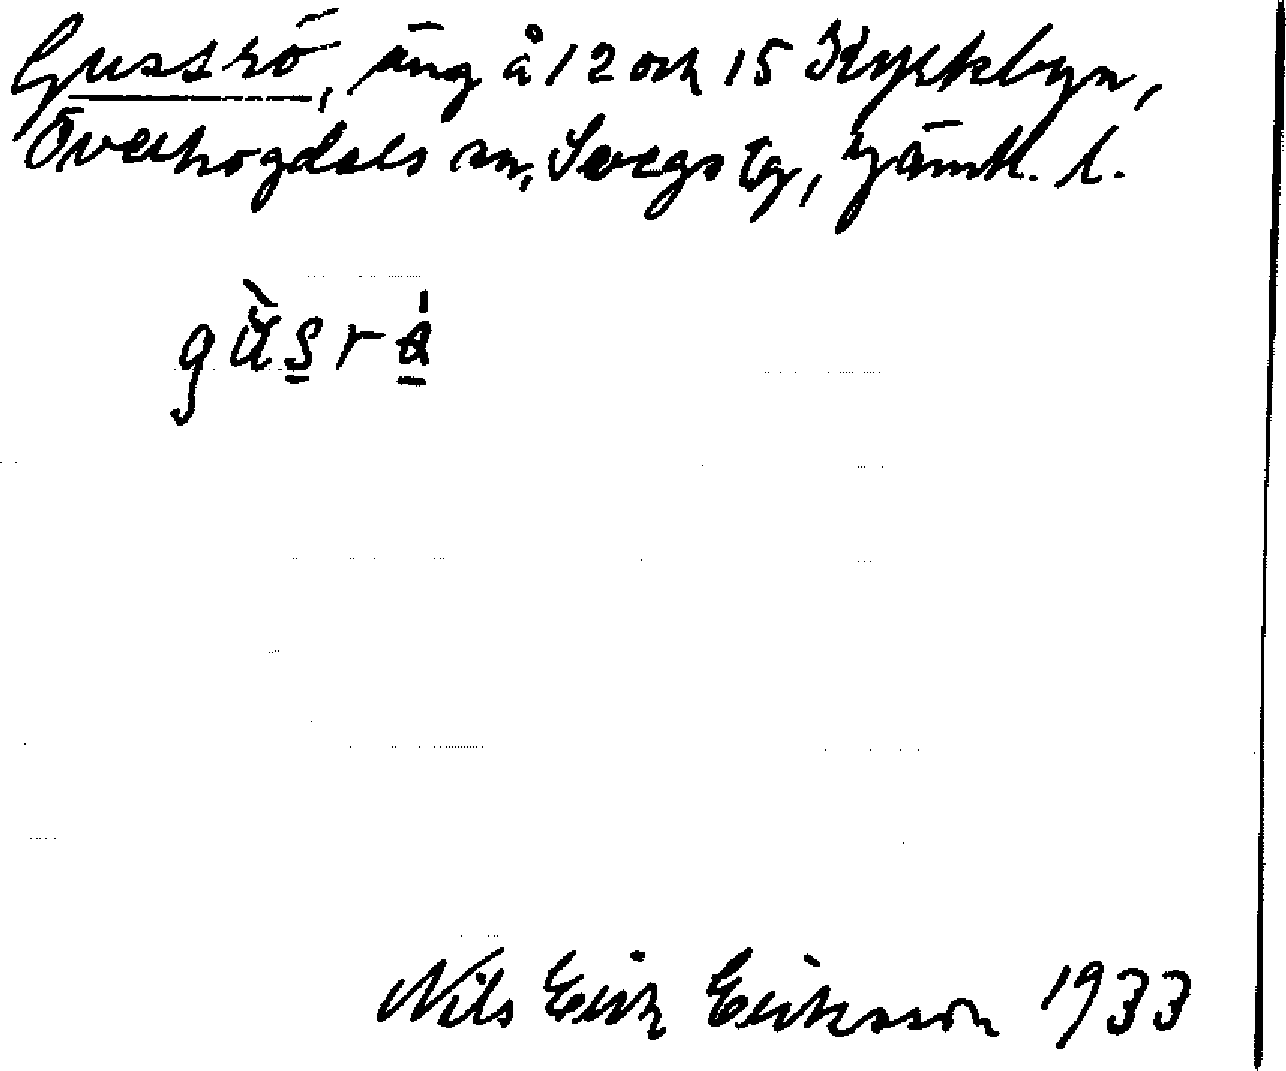 Gussrö, äng å 12 och 15 Kyrkbyn,
Överhogdals sn, Svegs tg, Jämtl. l.
Nils Erik Eriksson 1933